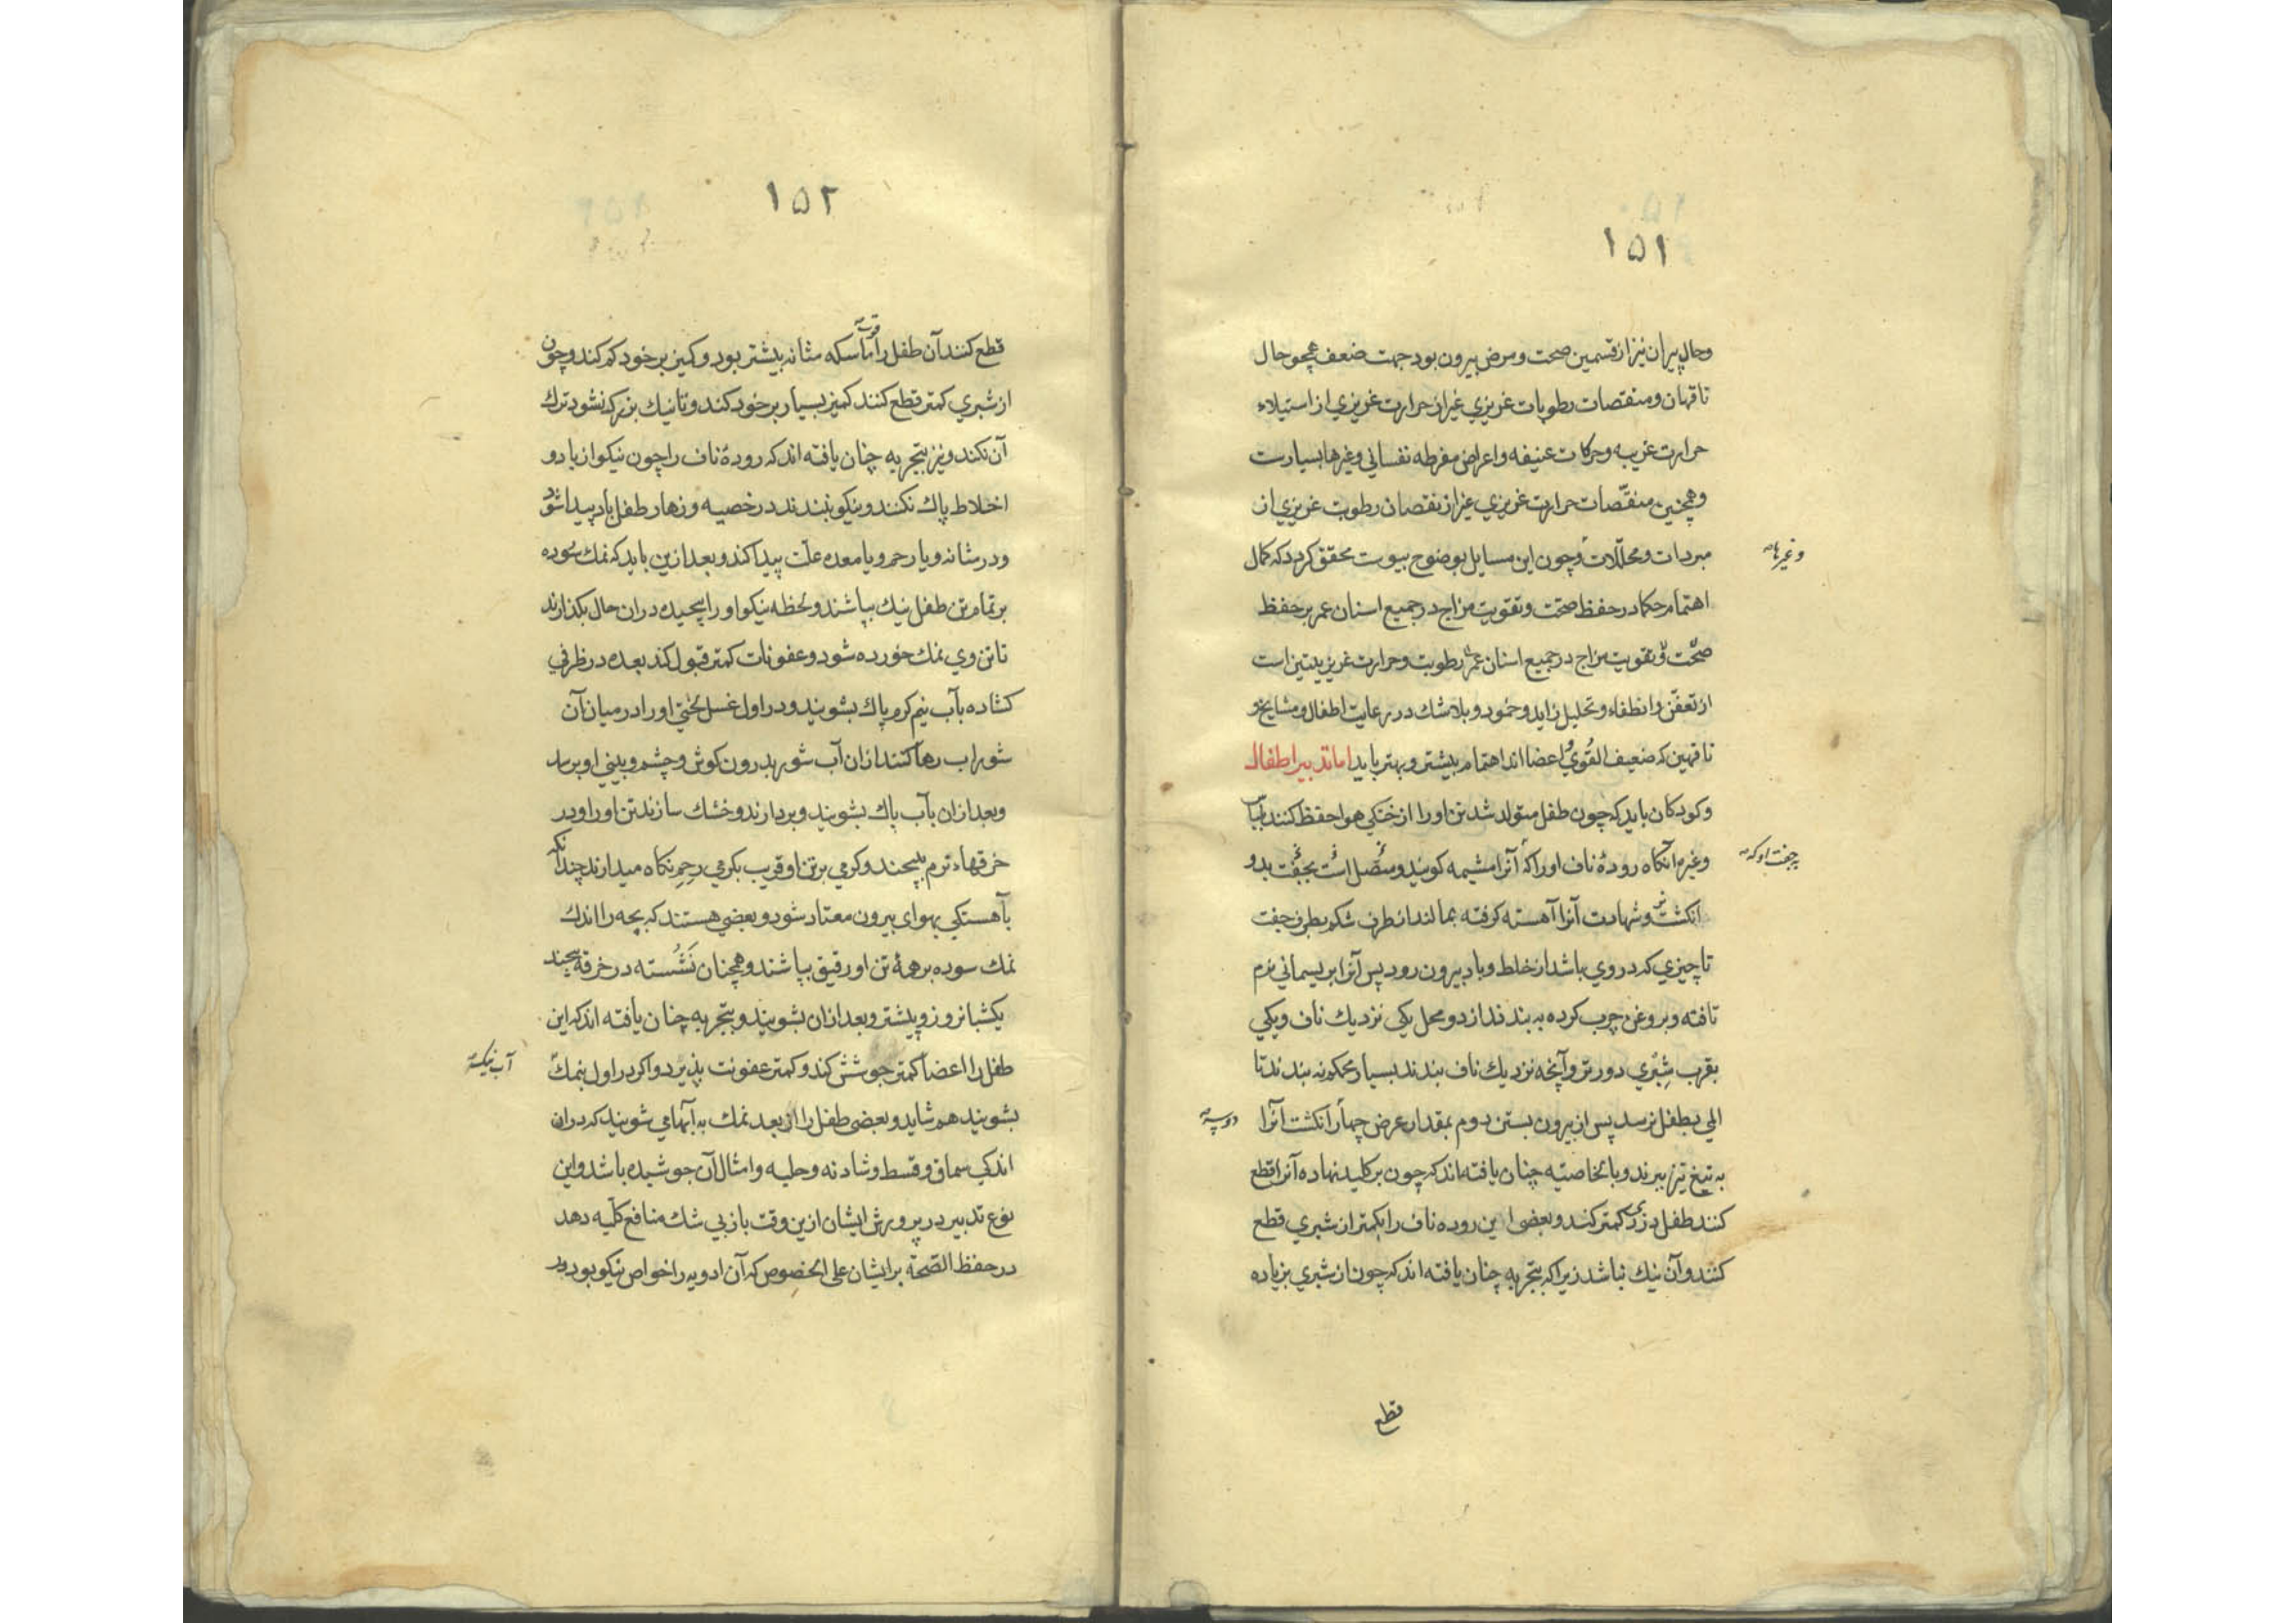 ١٥١
وحال پیران نیز از قسمین صحت ومرض بیرون بود جهت ضعف همچو حال
ناقهان ومنقصات رطوبات غریزي غیر از حرارت غریزي از استیلاء
حرارت غریبه وحرکات عنیفه واعراض مفرطه نفساني وغیرها بسیارست
وهمچنین منقّصات حرارت غریزي غیر از نقصان رطوبت غریزي از
مبردات ومحلّلات وچون این مسایل بوضوح پیوست محقق کردد که کمال
وغیرها
اهتمام حکما در حفظ صحّت وتقویت مزاج در جمیع اسنان عمر بر حفظ
صحّت وتقویت مزاج در جمیع اسنان عمر رطوبت وحرارت غریزیتین است
از تعفّن وانطفاء وتحلیل زاید وخمود وبلاشك در رعایت اطفال ومشایخ و
ناقهین که ضعیف القُوي واعضا اند اهتمام بیشتر وبهتر باید اما تدبیر اطفال
وکودکان باید که چون طفل متولد شد تن اورا از خنکي هوا حفظ کنند
وغیره آنکاه رودۀ ناف اورا که آنرا مشیمه کویند ومتصل است بجفت بدو
انکشت وشهادت آنرا آهسته کرفته بمالند از طرف شکم بطرف جفت
تا چیزي که در وي باشد از خلط وباد بیرون رود پس آنرا بریسماني نرم
تافته وبروغن چرب کرده به بندند از دو محل یکي نزدیك ناف ویکي
بقرب شِبْري دورتر وآنچه نزدیك ناف بندند بسیار محکم نه بندند تا
المي بطفل نرسد پس از بیرون بستن دوم بمقدار عرض چهار انکشت آنرا
به تیغ تیز ببرند وبالخاصیّه چنان یافته اند که چون بر کلید نهاده آنرا قطع
کنند طفل دزدي کمتر کند وبعضی این روده ناف را بکمتر از شبري قطع
کنند وآن نیك نباشد زیراکه بتجربه چنان یافته اند که چون از شبري بزیاده
قطع
١٥٢
قطع کنند آن طفل را قوت ماسکه مثانه بیشتر بود وکمیز بر خود کم کند وچون
از شبري کمتر قطع کنند کمیز بسیار بر خود کند وتا نیك بزرك نشود ترك
آن نکند ونیز بتجربه چنان یافته اند که رودۀ ناف را چون نیکو از باد و
اخلاط پاك نکنند ونیکو نبندند در خصیه وزهار طفل باد پیدا شود
ودر مثانه ویا رحم ویا معده علّت پیدا کند وبعد ازین باید که نمك سوده
بر تمام تن طفل نیك بپاشند ولحظه نیکو اورا پیچیده دران حال بکذارند
تا تن وي نمك خورده شود وعفونات کمتر قبول کند بعده در ظرفي
کشاده بآب نیم کرم پاك بشویند ودر اول غسل لختي اورا در میان آن
شوراب رها کنند ازان آب شور بدرون کوش وچشم وبیني او برسد
وبعد ازان بآب پاك بشویند وبردارند وخشك سازند تن اورا ودر
خرقهاء نرم پیچند وکرمي بر تن او قریب بکرمي رحِم نکاه میدارند چندانکه
بآهستکي بهواي بیرون معتاد شود وبعضي هستند که بچه را اندك
نمك سوده بر همۀ تن او رقیق بپاشند وهمچنان نَشُسته در خرقه پیچند
یکشبانروز وبیشتر وبعد ازان بشویند وبتجربه چنان یافته اند که این
طفل را اعضا کمتر جوشش کند وکمتر عفونت پذیرد واکر در اول بنمك
بشویند هم شاید وبعضی طفل را از بعد نمك به آبهامي شویند که دران
اندکي سماق وقسط وشادنه وحلبه وامثال آن جوشیده باشد واین
نوع تدبیر در پرورش ایشان ازین وقت باز بي شك منافع کلّیه دهد
در حفظ الصّحة بر ایشان علی الخصوص که آن ادویه را خواص نیکو بود ودر